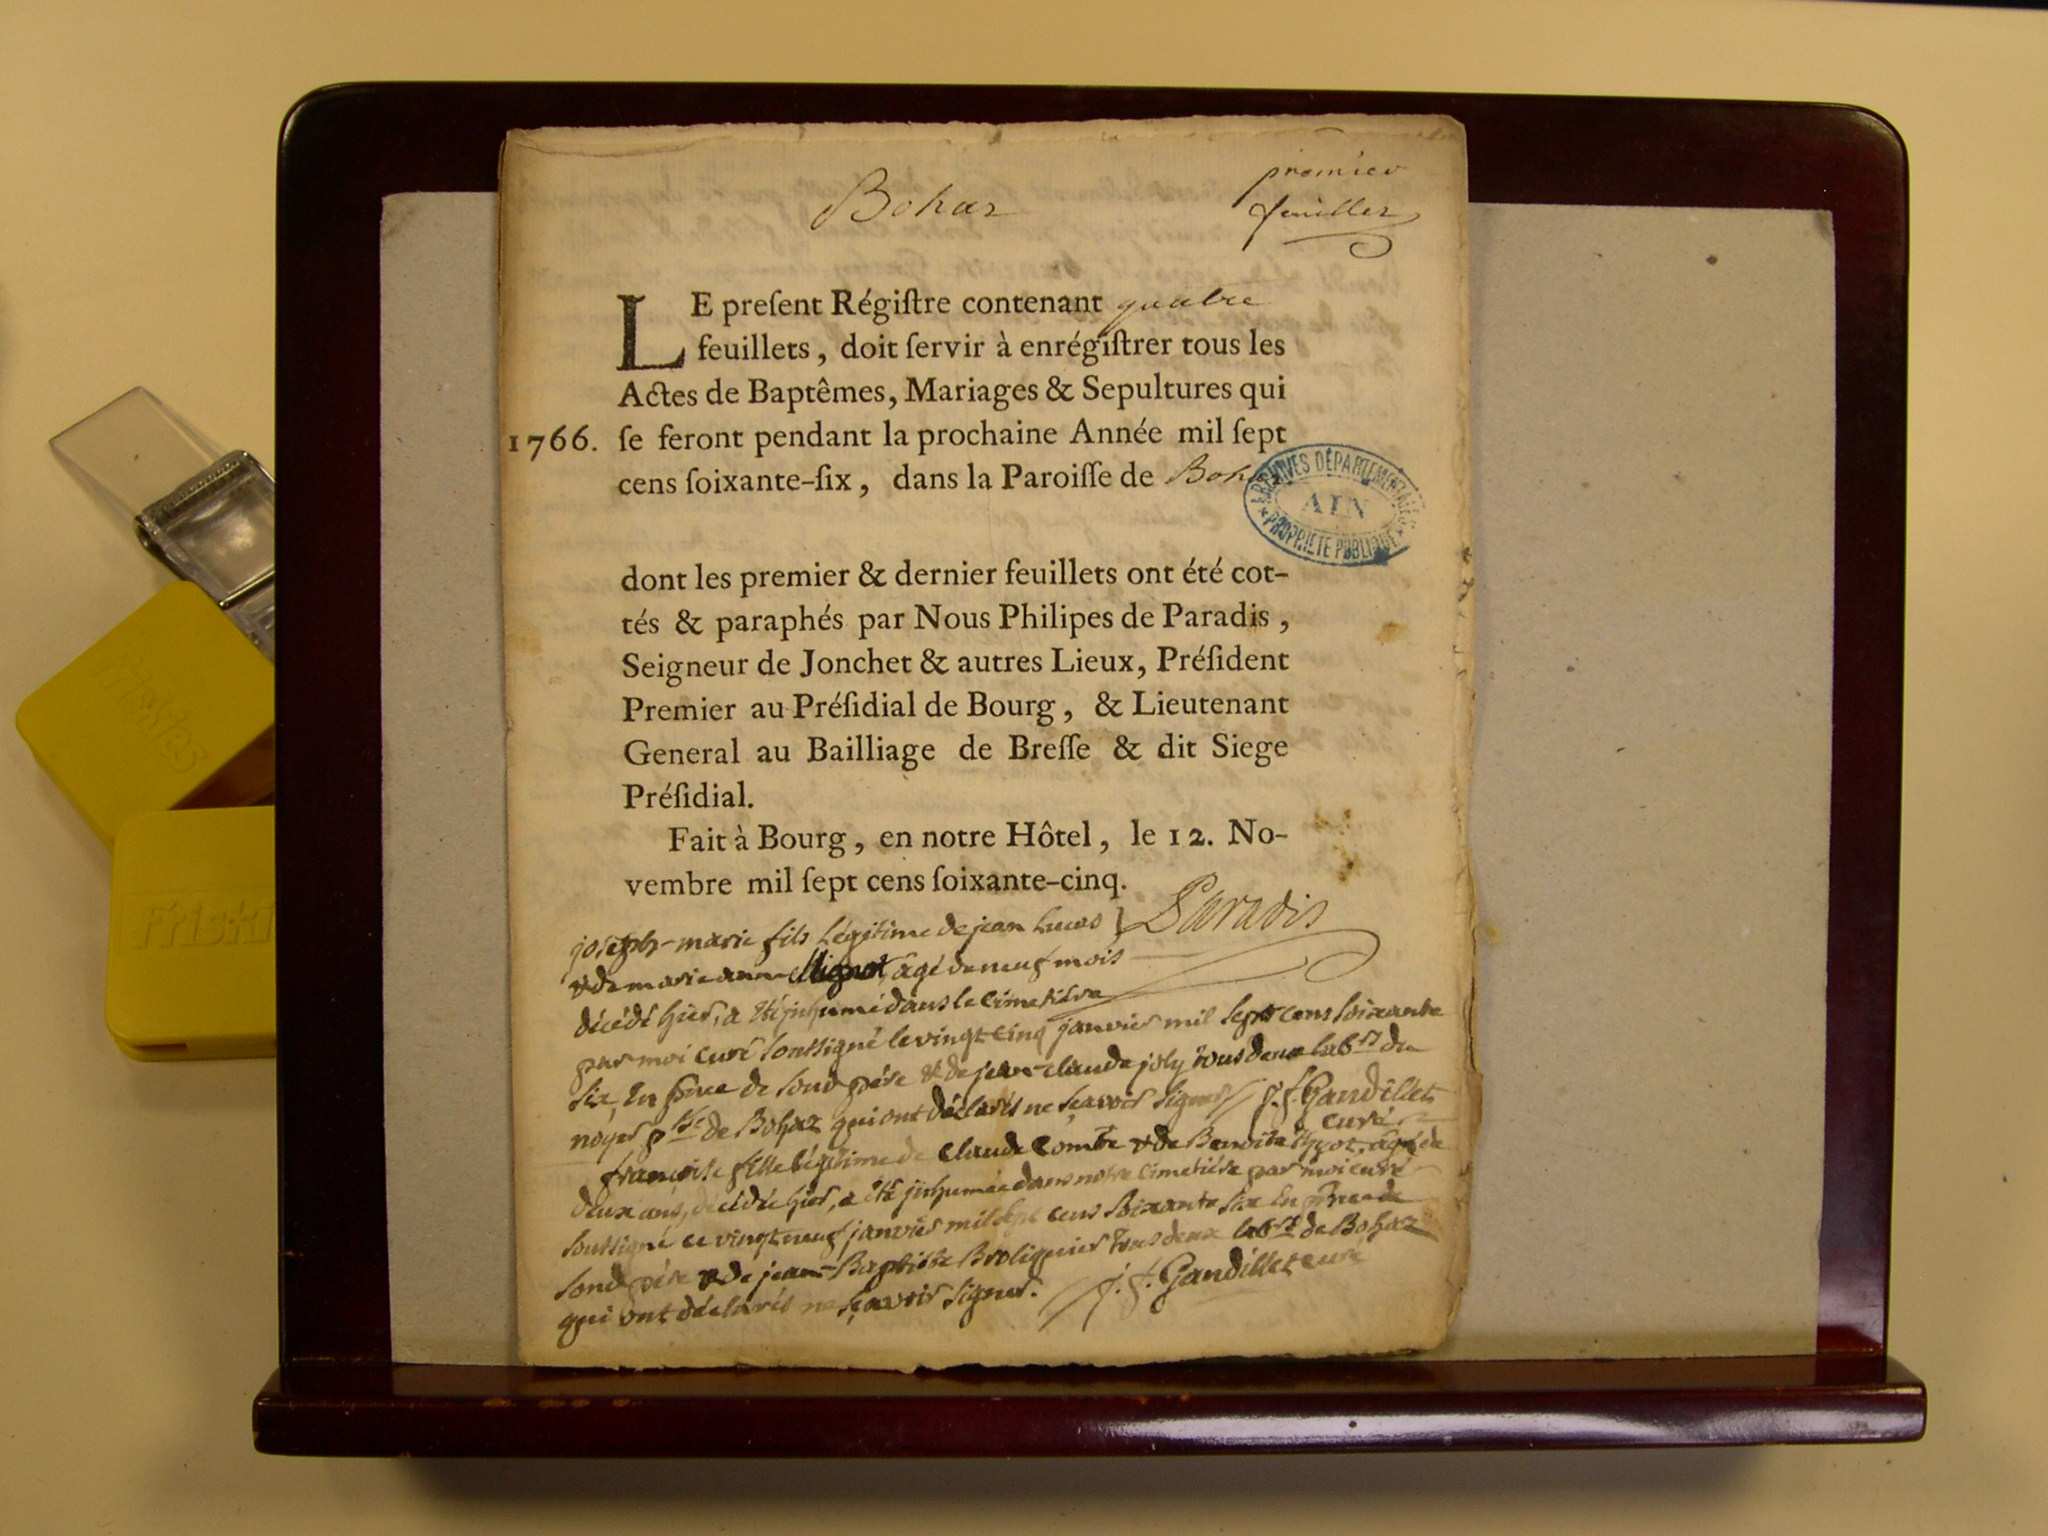 Bohaz
premier
feuillet
LE preſent Régiſtre contenant quatre
feuillets, doit ſervir à enrégiſtrer tous les
Actes de Baptêmes, Mariages & Sepultures qui
1766. ſe feront pendant la prochaine Année mil ſept
cens ſoixante-ſix, dans la Paroiſſe de Bohaz
ARCHIVES DÉPARTEMENTALES
AIN
PROPRIÉTÉ PUBLIQUE
dont les premier & dernier feuillets ont été cot-
tés & paraphés par Nous Philipes de Paradis,
Seigneur de Jonchet & autres Lieux, Préſident
Premier au Préſidial de Bourg, & Lieutenant
General au Bailliage de Breſſe & dit Siege
Préſidial.
Fait à Bourg, en notre Hôtel, le 12. No-
vembre mil ſept cens ſoixante-cinq.
Paradis
joseph-marie fils légitime de jean Lucas
& de marie anne Mignot, agé de neuf mois
décédé hier, a été jnhumé dans le cimetière
par moi curé soussigné le vingt cinq janvier mil sept cens soixante
six, En pnce de sond père & de jean-claude joly tous deux labrs du
noyer psse de Bohaz qui ont déclarés ne sçavoir signer j. f. Gandillet
curé
françoise fille légitime de claude Combe & de Benoite agé de
deux ans, décédée hier, a été jnhumée dans notre cimetière par moi curé
soussigné ce vingt neuf janvier mil sept cens soixante six En pnce de
sond père & de jean-Baptiste Broliquier tous deux labrs de Bohaz
qui ont déclarés ne sçavoir signer. j. f. Gandillet curé
Friskies
Friski